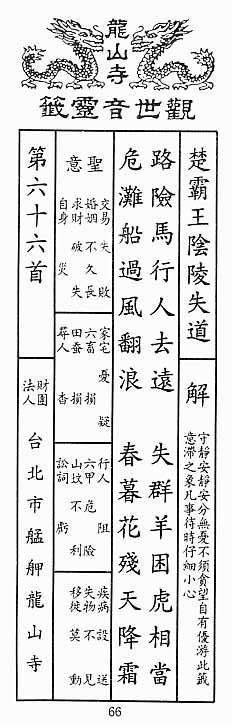 龍山寺
觀世音靈籤
楚霸王陰陵失道
解
守靜安靜安分無憂不須貪望自有優游此籤
意滯之象凡事待時仔細小心
路險馬行人去遠 失群羊困虎相當
危灘船過風翻浪 春暮花殘天降霜
聖意
交易失敗
婚姻不久長
求財破失
自身災
家宅憂疑
六畜損
田蚕損
尋人杳
行人阻
六甲危險
山坟不利
訟詞虧
疾病設送
失物不見
移徙莫動
第六十六首
財團
法人
台北市艋舺龍山寺
66